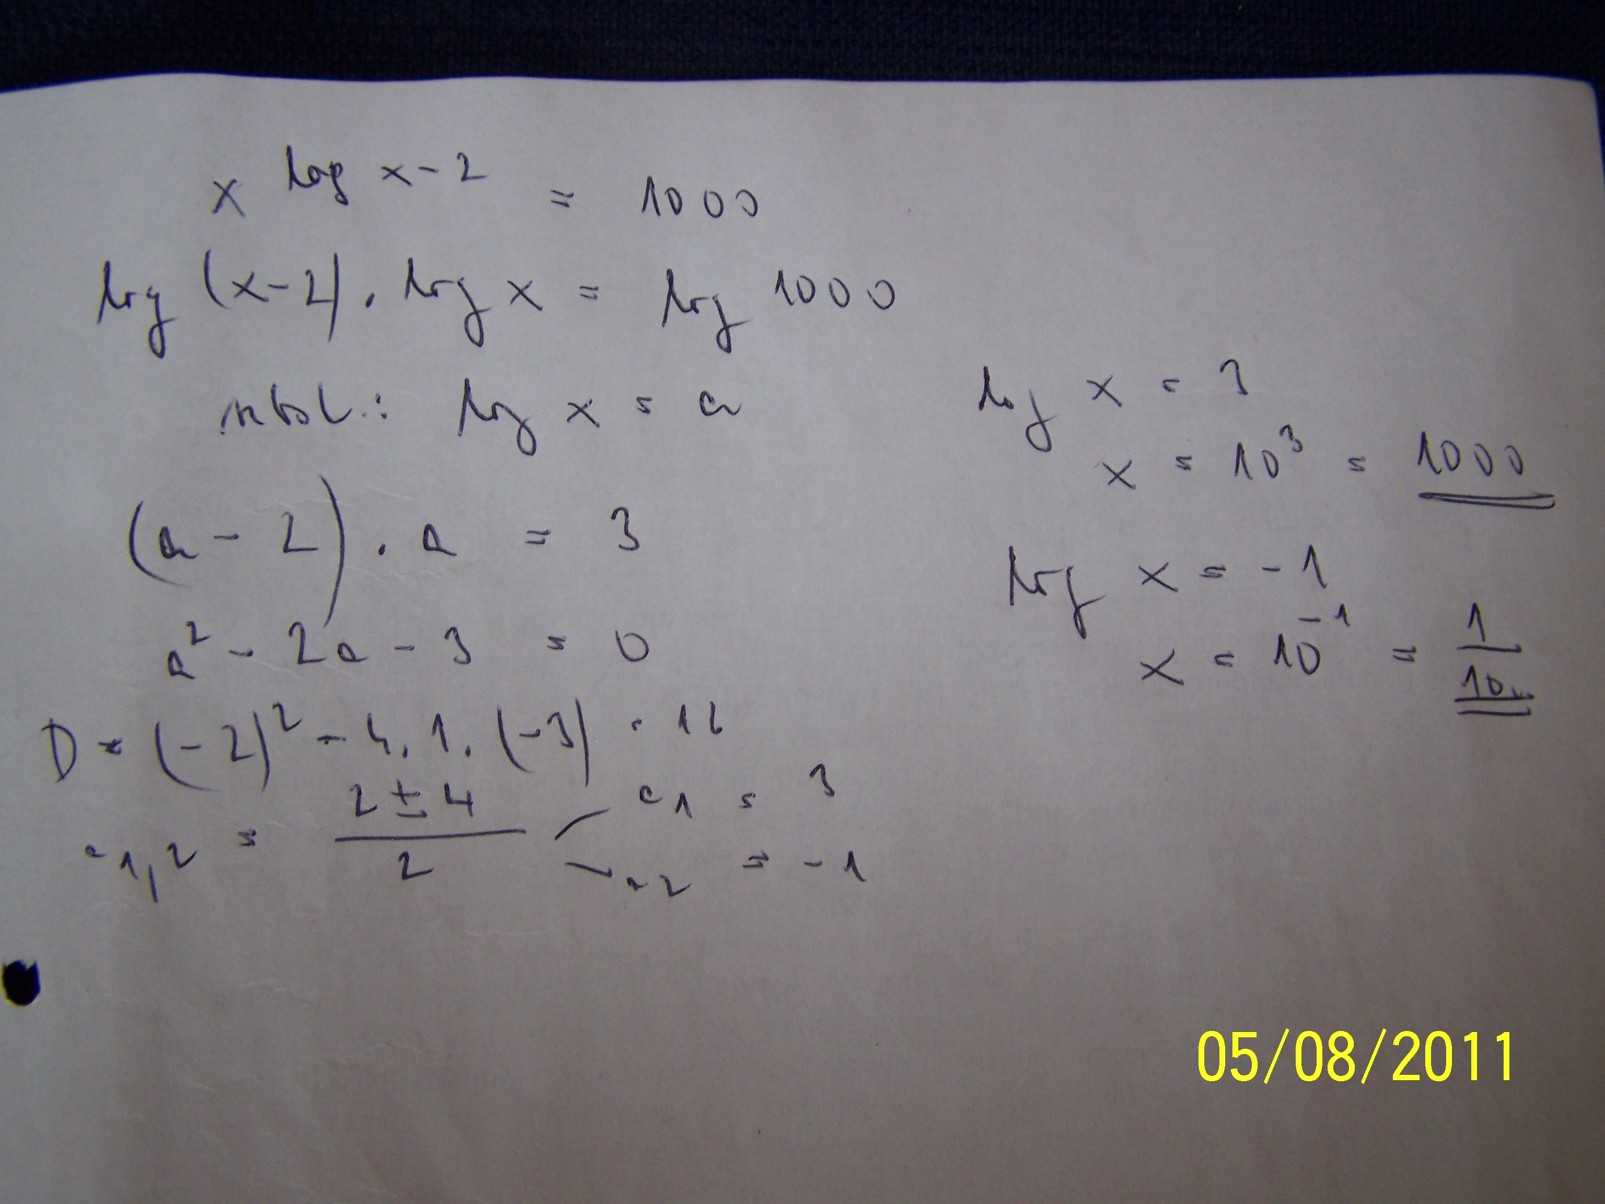 x^(log x-2) = 1000
log (x-2) . log x = log 1000
subst.: log x = a
(a - 2) . a = 3
a² - 2a - 3 = 0
D = (-2)² - 4.1.(-3) = 16
a1,2 = (2 ± 4)/2
a1 = 3
a2 = -1
log x = 3
x = 10³ = 1000
log x = -1
x = 10⁻¹ = 1/10
05/08/2011